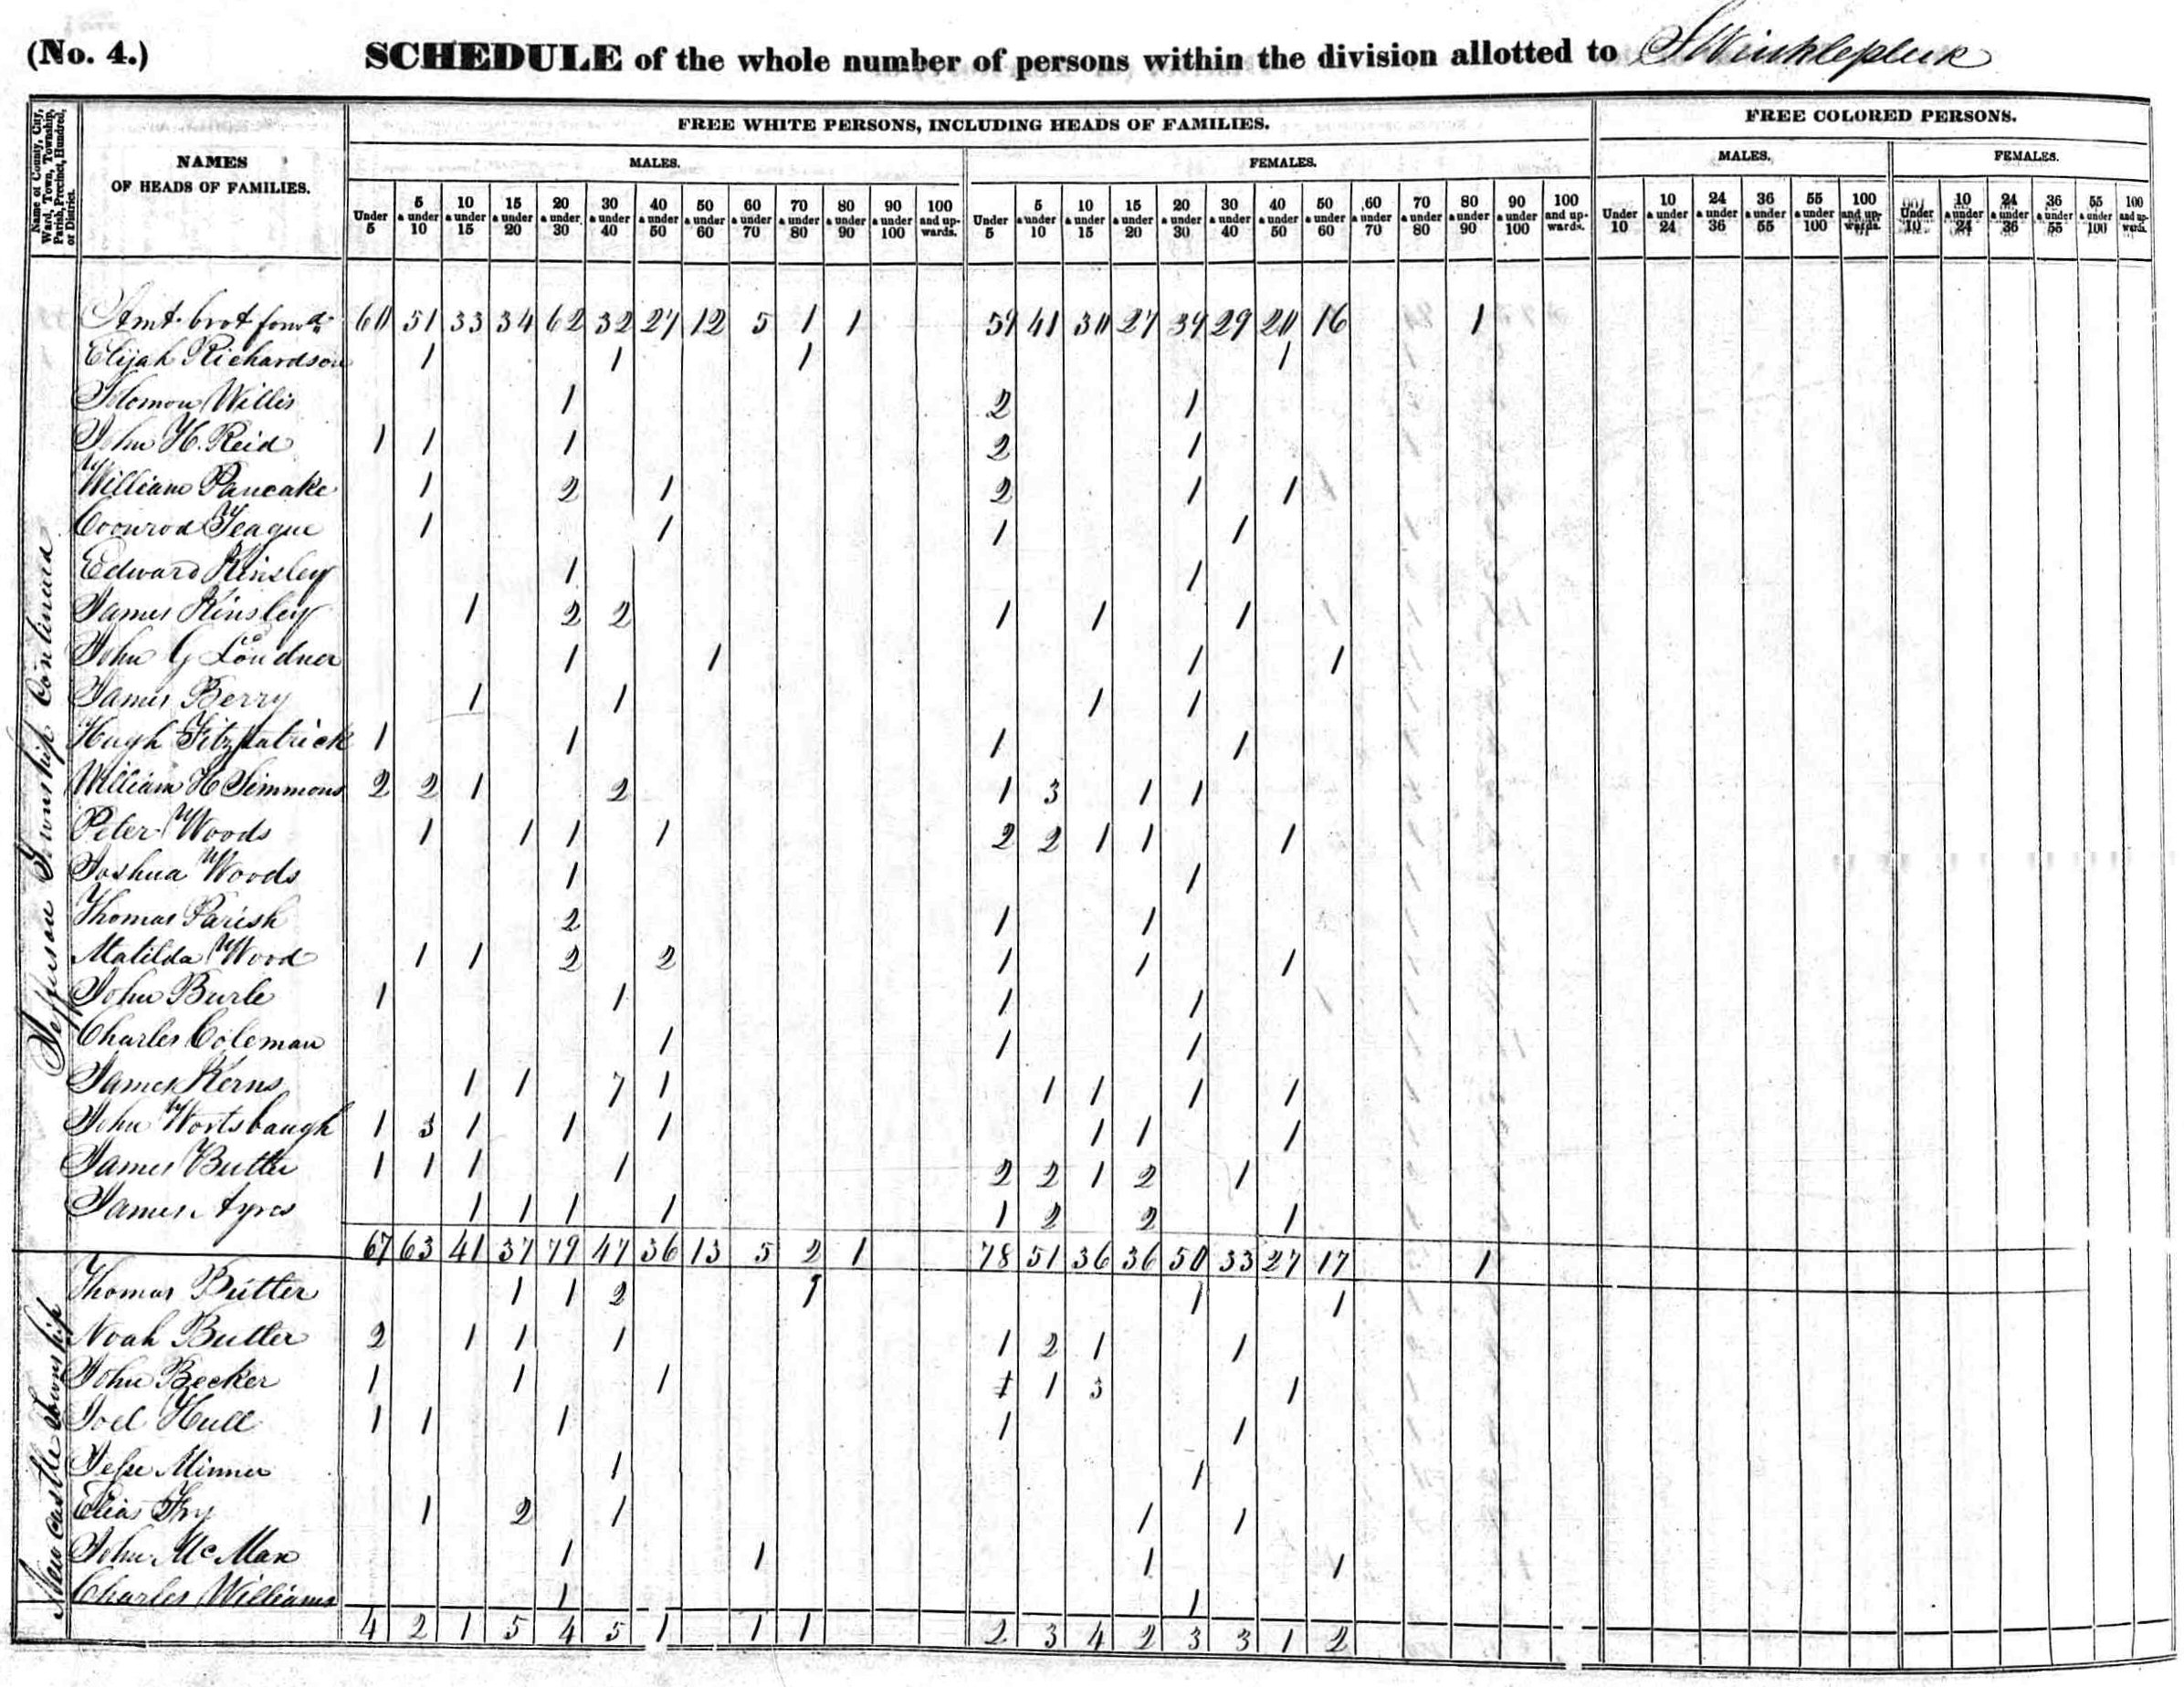 (No. 4.) SCHEDULE of the whole number of persons within the division allotted to
Name of County, City, Ward, Town, Township, Parish, Precinct, Hundred, or District.
NAMES
OF HEADS OF FAMILIES.
FREE WHITE PERSONS, INCLUDING HEADS OF FAMILIES. FREE COLORED PERSONS.
MALES. FEMALES. MALES. FEMALES.
Under 5 5 & under 10 10 & under 15 15 & under 20 20 & under 30 30 & under 40 40 & under 50 50 & under 60 60 & under 70 70 & under 80 80 & under 90 90 & under 100 100 and upwards. Under 5 5 & under 10 10 & under 15 15 & under 20 20 & under 30 30 & under 40 40 & under 50 50 & under 60 60 & under 70 70 & under 80 80 & under 90 90 & under 100 100 and upwards. Under 10 10 & under 24 24 & under 36 36 & under 55 55 & under 100 100 and upwards. Under 10 10 & under 24 24 & under 36 36 & under 55 55 & under 100 100 and upwards.
Jefferson Township Continued
Amt brot forwd 60 51 33 34 62 32 27 12 5 1 1 59 41 30 27 39 29 20 16 1
Elijah Richardson 1 1 1 1
Solomon Willis 1 2 1
John H. Reid 1 1 1 2 1
William Pancake 1 2 1 2 1 1
Coonrod Teague 1 1 1 1
Edward Kinsley 1 1
James Kinsley 1 2 2 1 1 1
John G Loudner 1 1 1 1
James Berry 1 1 1 1
Hugh Fitzpatrick 1 1 1 1
William H Simmons 2 2 1 2 1 3 1 1
Peter Woods 1 1 1 1 2 2 1 1 1
Joshua Woods 1 1
Thomas Parish 2 1 1
Matilda Wood 1 1 2 2 1 1 1
John Burle 1 1 1 1
Charles Coleman 1 1 1
James Kerns 1 1 7 1 1 1 1 1
John Wortsbaugh 1 3 1 1 1 1 1 1
James Butler 1 1 1 1 2 2 1 2 1
James Ayres 1 1 1 1 1 2 2 1
67 63 41 37 79 47 36 13 5 2 1 78 51 36 36 50 33 27 17 1
New Castle Township
Thomas Butler 1 1 2 1 1 1
Noah Butler 2 1 1 1 1 2 1 1
John Becker 1 1 1 1 3 1
Joel Hull 1 1 1 1 1
Jesse Minner 1 1
Elias Fry 1 2 1 1 1
John McMan 1 1 1 1
Charles Williams 1 1
4 2 1 5 4 5 1 1 1 2 3 4 2 3 3 1 2